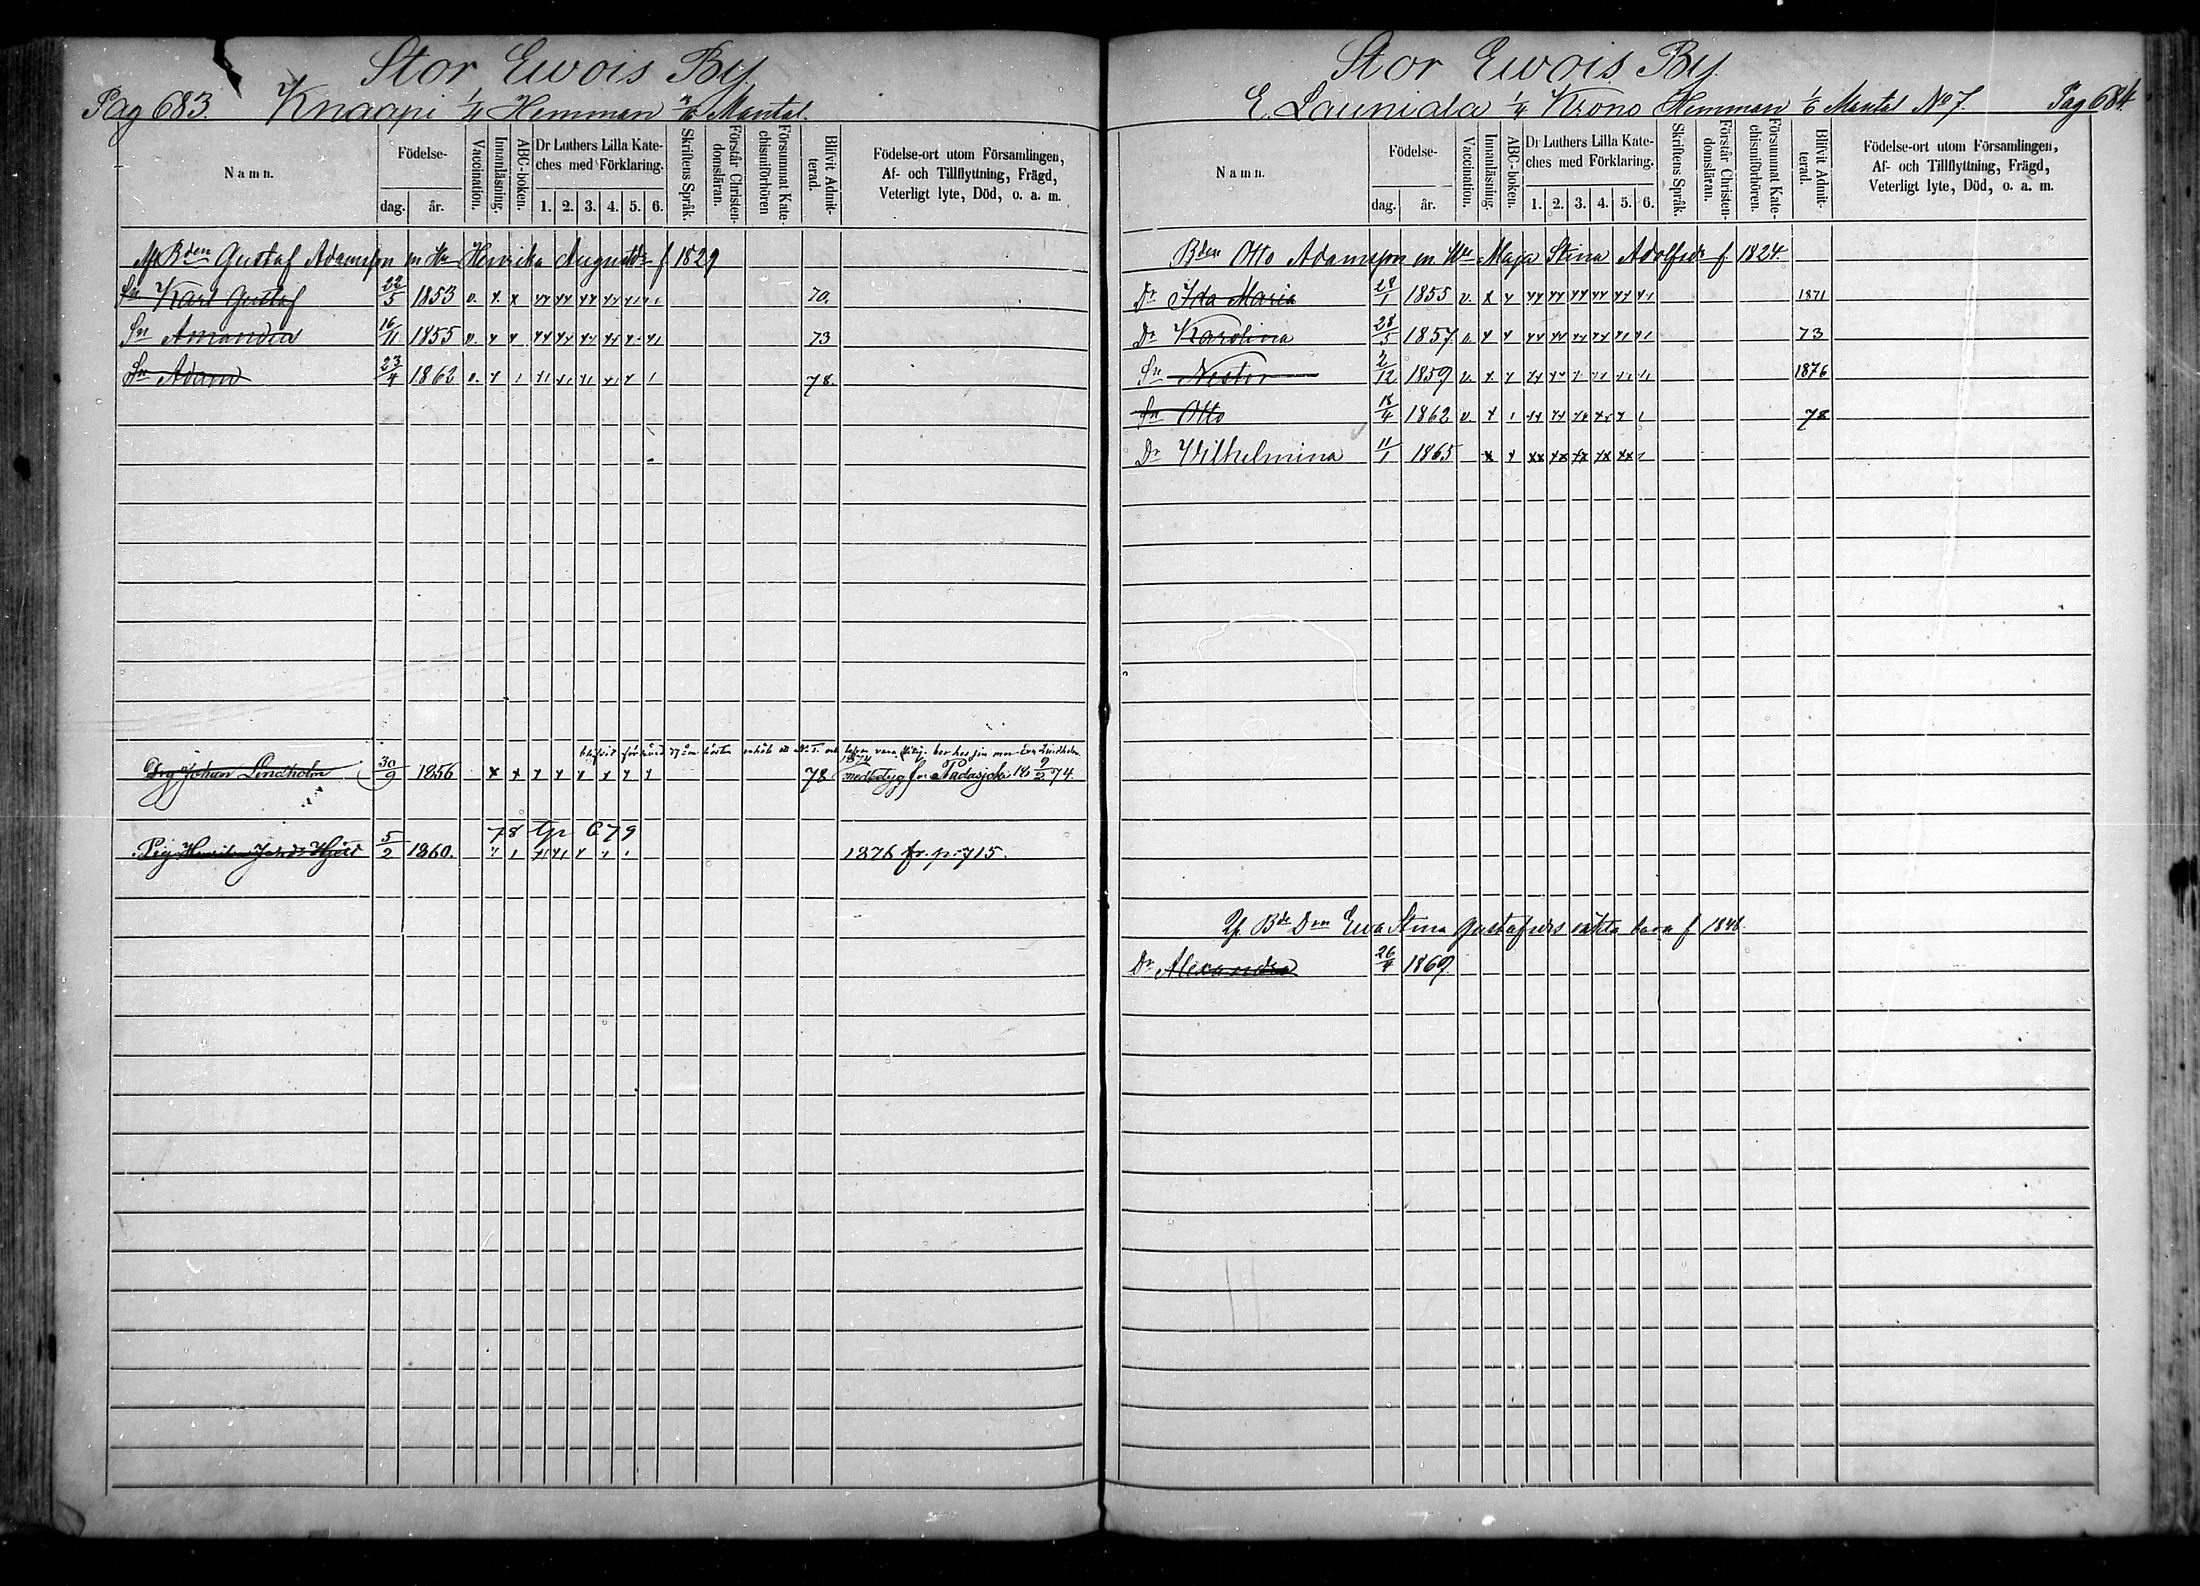 Stor Ewois By
Pag 683. Knaapi 1/4 Hemman Mantal.
Namn.
Födelse-
dag. år.
Vaccination.
Innanläsning.
ABC-boken.
Dr Luthers Lilla Kate-
ches med Förklaring.
1. 2. 3. 4. 5. 6.
Skriftens Språk.
Förstår Christen-
domsläran.
Försummat Kate-
chismiförhören
Blifvit Admit-
terad.
Födelse-ort utom Församlingen,
Af- och Tillflyttning, Frägd,
Veterligt lyte, Död, o. a. m.
Bden Gustaf Adamsson m Hu Henrika Augustdr f 1829
Sn Karl Gustaf 22/5 1853 v. x x xx xx xx xx x1 x1 70.
Sn Amandus 16/11 1855 v. x x xx xx xx xx x x1 73
Sn Adam 23/4 1862 v. x 1 x1 x1 x1 x1 x 1 78.
bor hos sin mor Eva Lindholm
Drg Johan Lindholm 30/9 1856 x x x x x x x x 78 1874 med betyg fr Padasjoki 9/2 74.
78 C 79
Pig Henrika 5/2 1860. x 1 x1 x1 x x 1 1876 fr. p. 715.
Stor Ewois By
E. Launiala 1/4 Krono Hemman 1/6 Mantal No 7. Pag 684.
Namn.
Födelse-
dag. år.
Vaccination.
Innanläsning.
ABC-boken.
Dr Luthers Lilla Kate-
ches med Förklaring.
1. 2. 3. 4. 5. 6.
Skriftens Språk.
Förstår Christen-
domsläran.
Försummat Kate-
chismiförhören.
Blifvit Admit-
terad.
Födelse-ort utom Församlingen,
Af- och Tillflyttning, Frägd,
Veterligt lyte, Död, o. a. m.
Bden Otto Adamsson m Hu Maja Stina Adolfsdr f 1824.
Dr Ida Maria 28/1 1855 v. x x xx xx xx xx xx x1 1871
Dr Karolina 28/5 1857 v. x x xx xx xx xx x1 x1 73
Sn Nestor 2/12 1859 v. x x xx xx x x1 x1 11 1876
Sn Otto 18/4 1862 v. x 1 xx xx xx xx x 1 78
Dr Wilhelmina 11/1 1865 x x xx xx xx xx xx 1
Bde Drn Ewa Stina Gustafsdrs oäkta barn f 1846
Dr Alexandra 26/4 1869